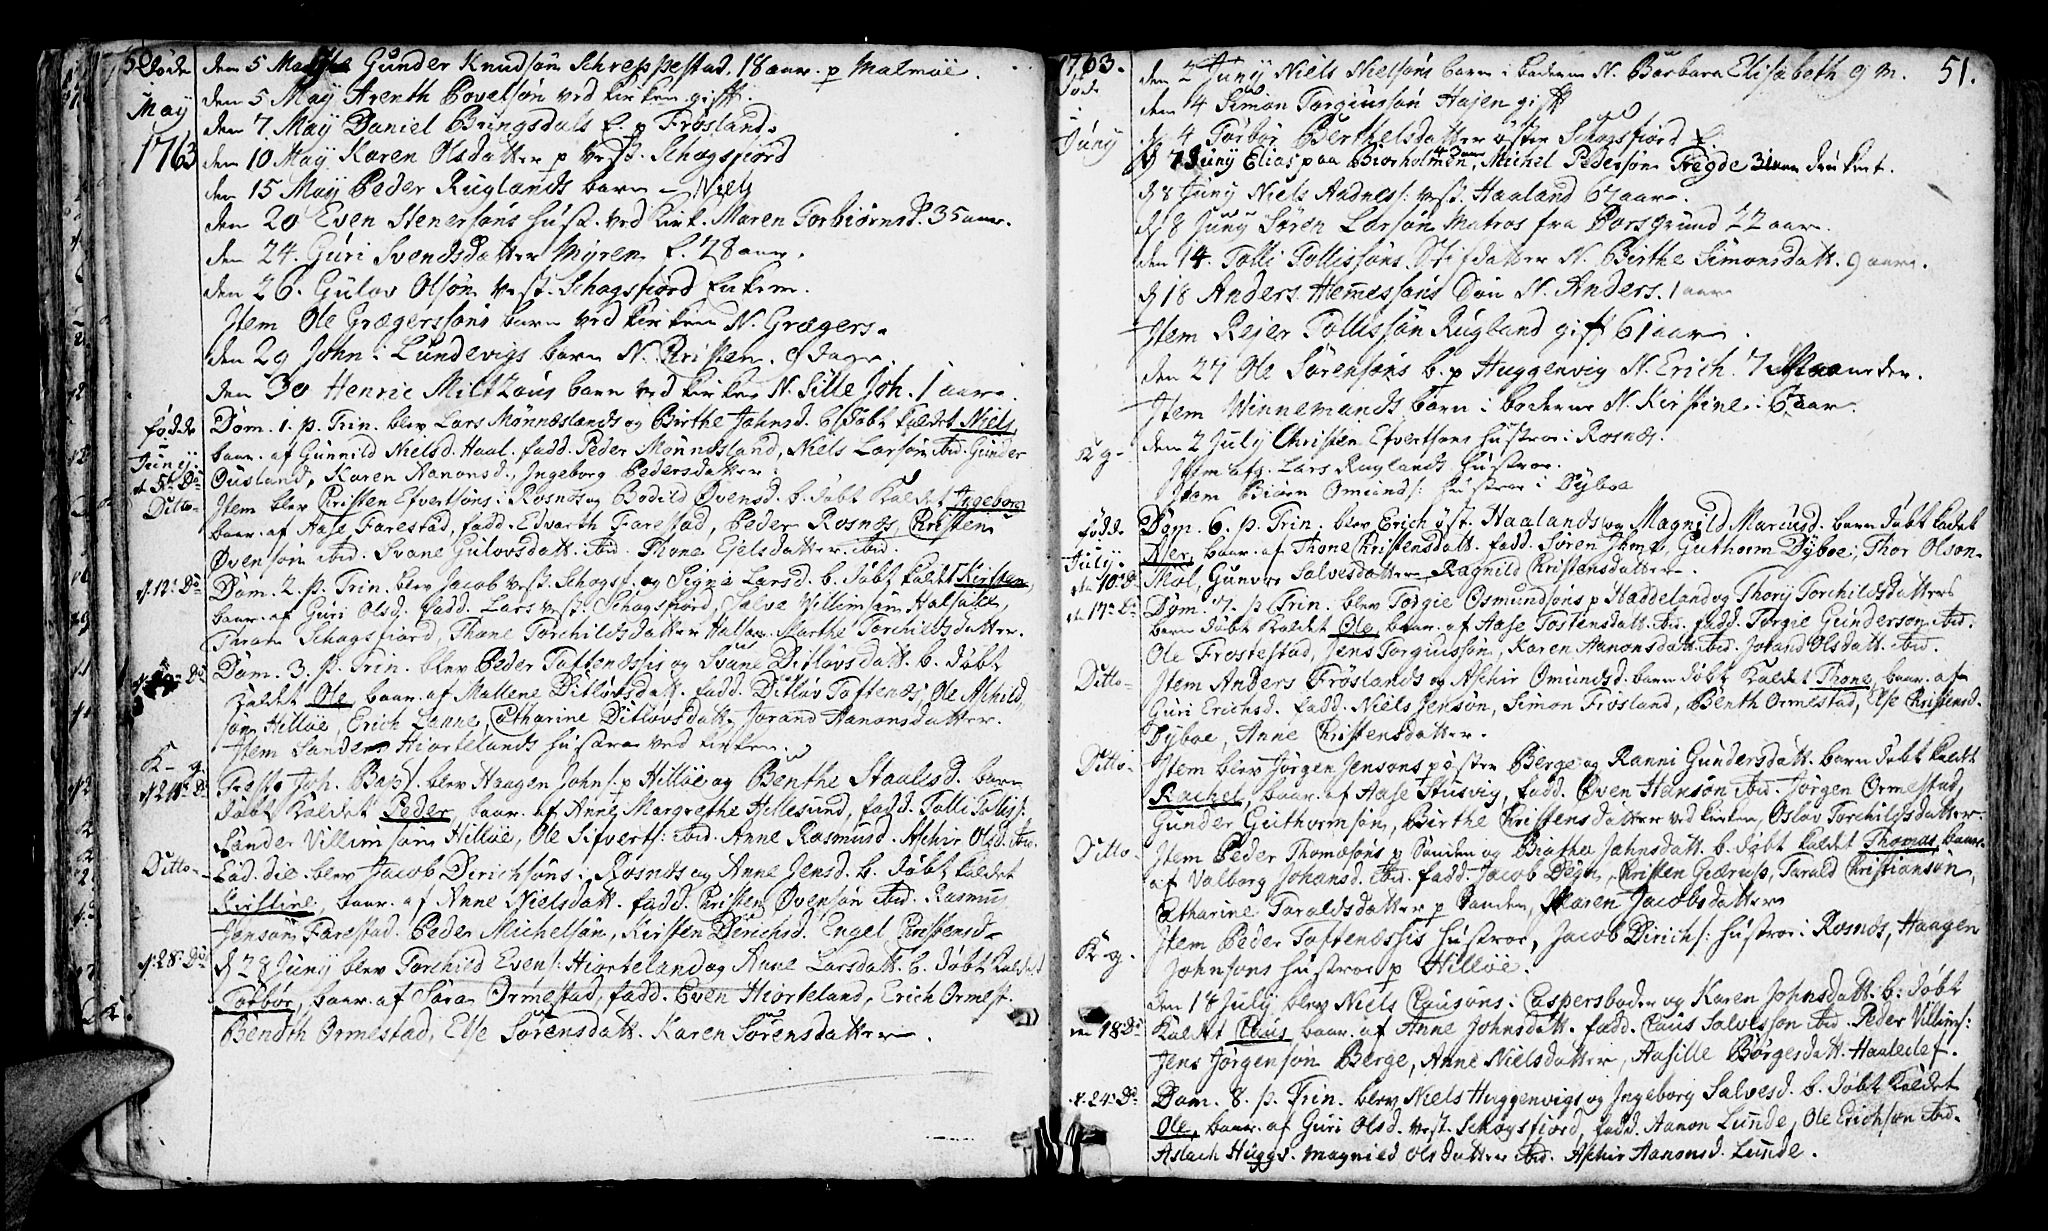 Døde
May
1763
den 5 May Gunder Knudsøn Schreppestad. 18 aar. p Malmøe.
den 5 May Arenth Povelsøn ved kirken gift.
den 7 May Daniel Bringsdals f. p Frøsland.
den 10 May Karen Olsdatter p vest. Schogsfiord
den 15 May Peder Ruglands barn - Niels
den 20 Even Stenersøns hust. ved kirk. Maren Torbiørnsd. 35 aar.
den 24. Guri Svendsdatter Myren f. 28 aar.
den 26. Gulov Olsøn vest. Schogsfiord Enkem.
Item Ole Grægerssøns barn ved kirken N. Grægers.
den 29 John Lundevigs barn N. Christen. 9 dage.
den 30 Henric Miltzous barn ved kirken N. Sille Joh. 1 aar.
fødde
Junij
d. 5te Do
Dom. 1. p. Trin. blev Lars Mønnæslands og Birthe Johnsd. b. døbt kaldet Niels
baar. af Gunnild Nielsd. Haal. fadd. Peder Mønnesland, Niels Larsøn ibid. Gunder
Ousland, Karen Aanonsd., Ingeborg Pedersdatter.
Ditto-
Item blev Christen Efvertsøns i Rosnes og Bodild Øvensd. b. døbt kaldet Ingeborg
baar. af Aase Farestad, fadd. Edvarth Farestad, Peder Rosnes, Christen
Øvensøn ibid. Svane Gulovsdatt. ibid. Thone Ejelsdatter ibid.
d. 12. Do
Dom. 2. p. Trin. blev Jacob vest. Schogsf. og Signe Larsd. b. døbt kaldet Kirsten,
baar. af Guri Olsd. fadd. Lars vest. Schogsfiord, Salve Villimsøn Halsaae,
Schogsfiord, Thone Torchildsdatter Marthe Torchildsdatter.
Dom. 3. p. Trin. blev Peder Toftenessis og Svane Ditlovsdatt. b. døbt
kaldet Ole, baar. af Mallene Ditlovsdatt. fadd. Ditlov Toftenes, Ole Aschild-
søn Hilløe, Erich Canne, Catharine Ditlovsdatt. Jorand Aanonsdatter.
K-g.
Item Sander Hiortelands hustroe ved kirken.
d. 24. Do
Festo Joh. Bapt. blev Haagen Johns: p Hilløe og Benthe Staalesd. barn
døbt kaldet Peder, baar. af Anne Margrethe Hellesund, fadd. Tolli Tollis:
Sander Villimsøn Hilløe, Ole Sifverts: ibid. Anne Rasmusd. Aschir Olsd. ibid.
Ditto-
Eod. die. blev Jacob Dirichsøns i Rosnes og Anne Jensd. b. døbt kaldet
Kirstine, baar. af Anne Nielsdatt. fadd. Christen Øvensøn ibid. Rasmus
Jonsøn Farestad. Peder Michelsøn, Kirsten Dirichsd. Engel Christensd.
d. 28. Do
d. 28 Juny blev Torchild Evens: Hiorteland og Anne Larsdatt. b. døbt kaldet
Torbor, baar. af Sara Ormestad, fadd. Even Hiorteland, Erich Ormest.
Bendth Ormestad, Else Sørensdatt. Karen Sørensdatter.
1763.
51.
Døde
i
Juny
den 2 Juny Niels Nielsøns barn i boderne N. Barbara Elisabeth 9 m.
den 4 Simon Torgiussøn Hajen gift
d. 4 Torbor Berthelsdatter øster Schogsfiord f.
d. 7 Juny Elias paa Biorholmen, Michel Pedersøn Tregde 31 aar druknet.
d. 8 Juny Niels Aadness: vest. Haaland 67 aar.
d. 8 Juny Søren Larsøn Matros fra Porsgrund 22 aar.
den 14. Tolli Tollissøns Stifdatter N. Birthe Simonsdatt. 9 aar.
d. 18 Anders Hemessøns Søn N. Anders. 1 aar
Item Rejer Tollissøn Rugland gift 61 aar.
den 27 Ole Sørensøns b. p Huggenvig N. Erich. 7 Maaneder.
Item Winnemands barn i boderne N. Kirstine. 6 aar.
K g-
den 2 July Christen Efvertsøns hustroe i Rosnes.
Item afg. Lars Ruglands hustroe.
Item Biørn Omunds: hustroe i Dyboe
fødde
July
den 10. Do
Dom. 6. p. Trin. blev Erich øst. Haalands og Magnild Marcusd. barn døbt kaldet
Aler, baar. af Thone Christensdatt. fadd. Søren Guthorm Dyboe, Thor Olsøn
Mol, Gunvor Salvesdatter, Ragnild Christensdatter.
d. 17. Do
Dom. 7. p. Trin. blev Torgie Osmundsøns p Haddeland og Thory Torchildsdatters
barn døbt kaldet Ole baar. af Aase Tostensdatt. ibid. fadd. Torgie Gundersøn ibid.
Ole Frostestad, Jens Torgiussøn, Karen Aanonsdatt. ibid. Jorand Olsdatt. ibid.
Ditto-
Item Anders Frøslands og Aschir Omundsd. barn døbt kaldet Thone, baar. af
Guri Erichsd. fadd. Niels Jensøn, Simon Frøsland, Benth Ormestad, Else Christensd.
Dyboe, Anne Christensdatter.
Ditto-
Item blev Jørgen Jensøns p øster Berge og Ranni Gundersdatt. barn døbt kaldet
Rachel, baar. af Aase Stusvig, fadd. Øven Hansøn ibid. Jørgen Ormestad,
Gunder Guthormsøn, Birthe Christensdatter ved kirken, Oslov Torchildsdatter.
Ditto-
Item Peder Thomæsøns p Sanden og Birthe Johnsdatt. b. døbt kaldet Thomas, baar.
af Valborg Johansd. ibid. fadd. Jacob Degn, Christen Giærus, Tarald Christiansøn,
Catharine Taraldsdatter p Sanden, Maren Jacobsdatter
K g.
Item Peder Toftenessis hustroe, Jacob Dirichs: hustroe i Rosnes, Haagen
Johnsøns hustroe p Hilløe.
den 18 Do
den 18 July blev Niels Clausøns i Caspersboder og Karen Johnsdatt. b. døbt
kaldet Claus, baar. af Anne Johnsdatt. fadd. Claus Salvessøn ibid. Peder Villims:
Jens Jørgensøn Berge, Anne Nielsdatter, Aasille Børgesdatt.
d. 24. Do
Dom. 8. p. Trin. blev Niels Huggenvigs og Ingeborg Salvesd. b. døbt kaldet
Ole, baar. af Guri Olsd. vest. Schogsfiord, fadd. Aanon Lunde, Ole Erichsøn ibid.
Aslach Huggs. Magnild Olsdatter ibid. Aschir Aanonsd. Lunde.